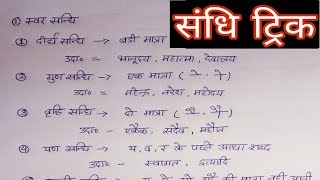 संधि ट्रिक
① स्वर सन्धि
① दीर्घ सन्धि → बडी मात्रा
उदा० - भानूदय, महात्मा, देवालय
② गुण सन्धि → एक मात्रा
उदा० - महेन्द्र, नरेश, महोदय
③ वृद्धि सन्धि → दो मात्रा
उदा० - एकैक, सदैव, महौज
④ यण सन्धि → य, व, र के पहले आधा शब्द
उदा० - स्वागत, इत्यादि